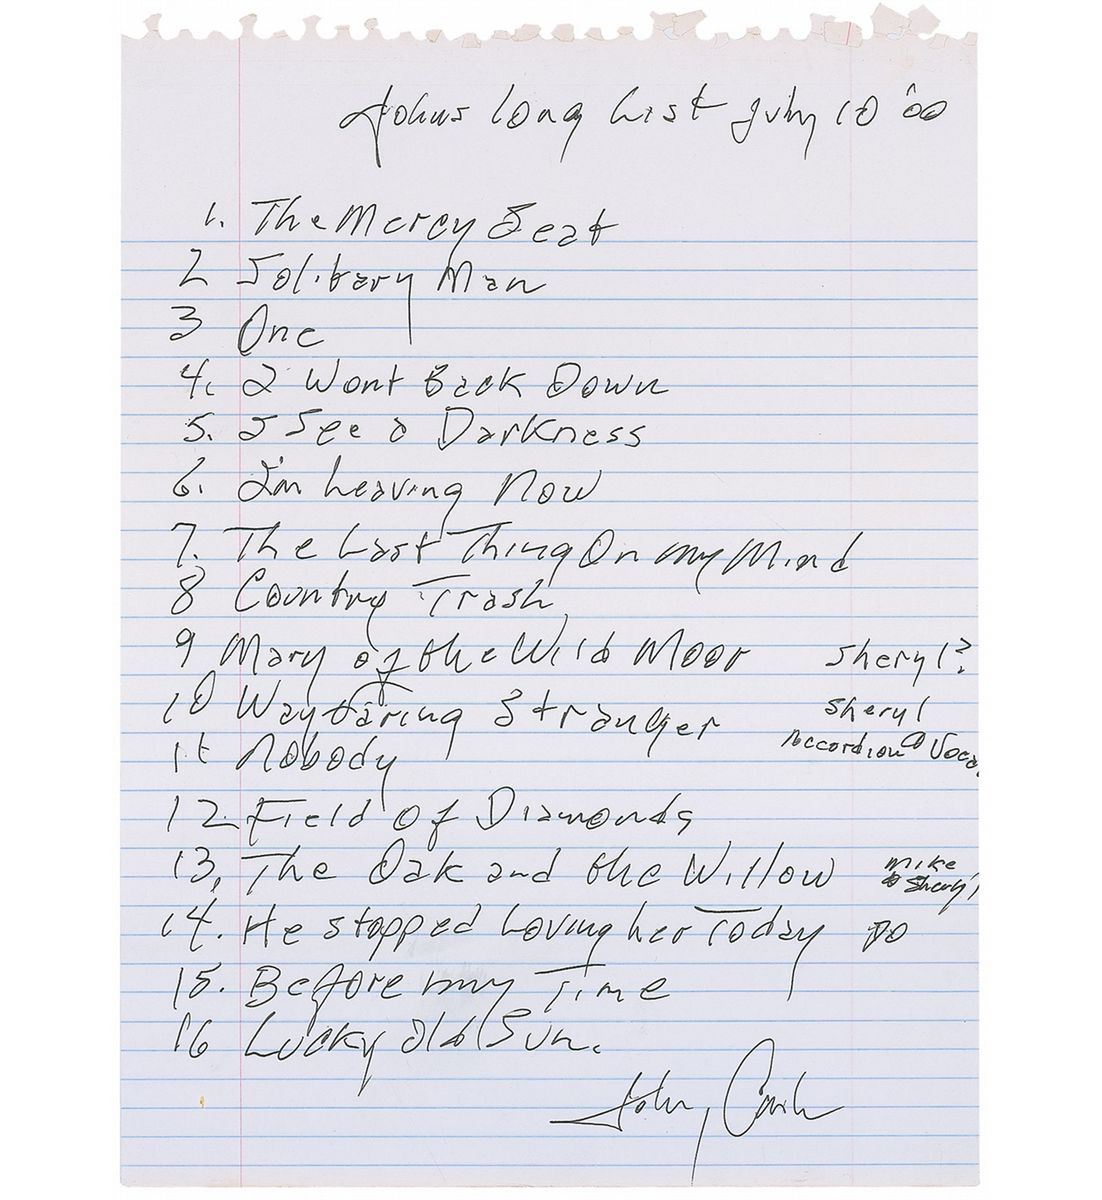 Johns long List July 10 '00
1. The Mercy Seat
2 Solitary Man
3 One
4. I Wont Back Down
5. I See a Darkness
6. I'm Leaving Now
7. The Last Thing On my Mind
8 Country Trash
9 Mary of the Wild Moor Sheryl?
10 Wayfaring Stranger Sheryl
Accordion & Vocal
11 Nobody
12. Field of Diamonds
13. The Oak and the Willow Mike
& Sheryl
14. He stopped Loving her Today DO
15. Before my Time
16 Lucky Old Sun.
Johnny Cash